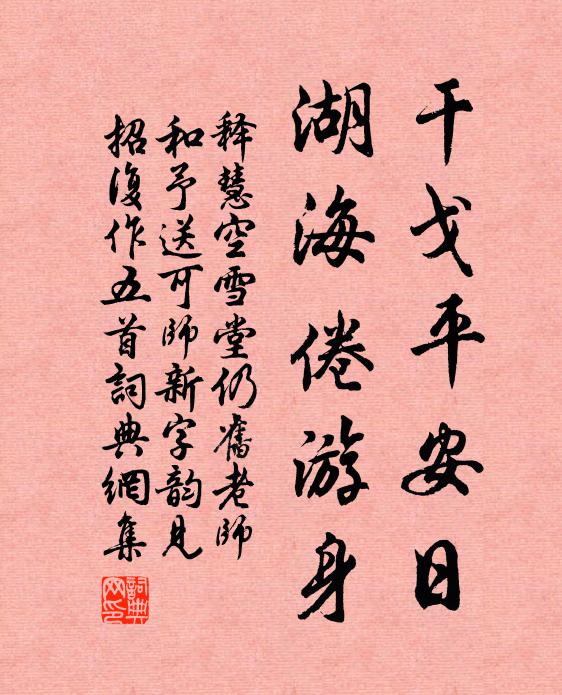 干戈平安日
湖海倦游身
释慧空雪堂仍旧老师
和予送可师新字韵见
招復作五首詞典網集
詞典網印